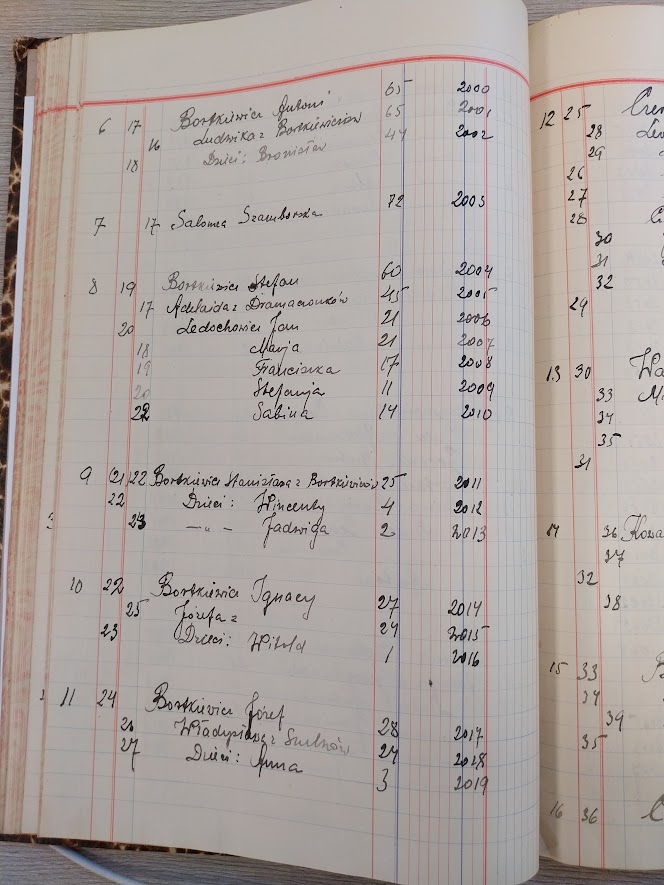 6 17 Bortkiewicz Antoni 65 2000
16 Ludwika z Bortkiewiczów 65 2001
18 Dzieci: Bronisław 44 2002
7 17 Salomea Szamborska 72 2003
8 19 Bortkiewicz Stefan 60 2004
17 Adelaida z 45 2005
20 Ledochowicz Jan 21 2006
18 Marja 21 2007
19 Franciszka 17 2008
20 Stefanja 11 2009
22 Sabina 14 2010
9 (21) 22 Bortkiewicz Stanisława z Bortkiewiczów 25 2011
22 Dzieci: Wincenty 4 2012
23 —„— Jadwiga 2 2013
10 22 Bortkiewicz Ignacy 27 2014
25 Józefa z 24 2015
23 Dzieci: Witold 1 2016
11 24 Bortkiewicz Józef 28 2017
26 Władysława z 24 2018
27 Dzieci: Anna 3 2019
12 25
28
29
26
27
28
30
31
32
29
13 30
33
34
35
31
14 36
37
32
38
15 33
34
39
35
16 36